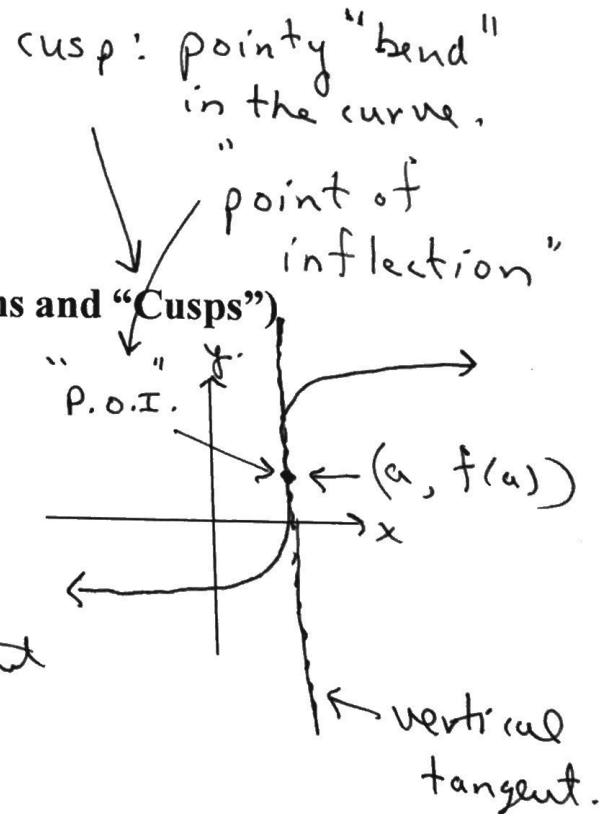 cusp: pointy "bend"
in the curve.
"point of
inflection"
ns and “Cusps”)
"P.O.I."
y
(a, f(a))
x
vertical
tangent.